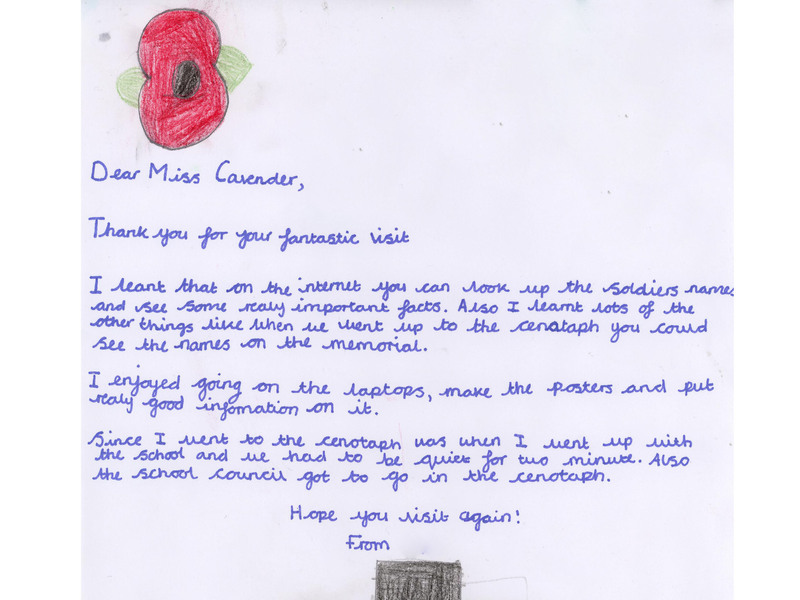 Dear Miss Cavender,
Thank you for your fantastic visit
I leant that on the internet you can look up the soldiers names
and see some realy important facts. Also I learnt lots of the
other things like when we went up to the cenataph you could
see the names on the memorial.
I enjoyed going on the laptops, make the posters and put
realy good infomation on it.
Since I went to the cenotaph was when I went up with
the school and we had to be quiet for two minute. Also
the school council got to go in the cenotaph.
Hope you visit again!
From